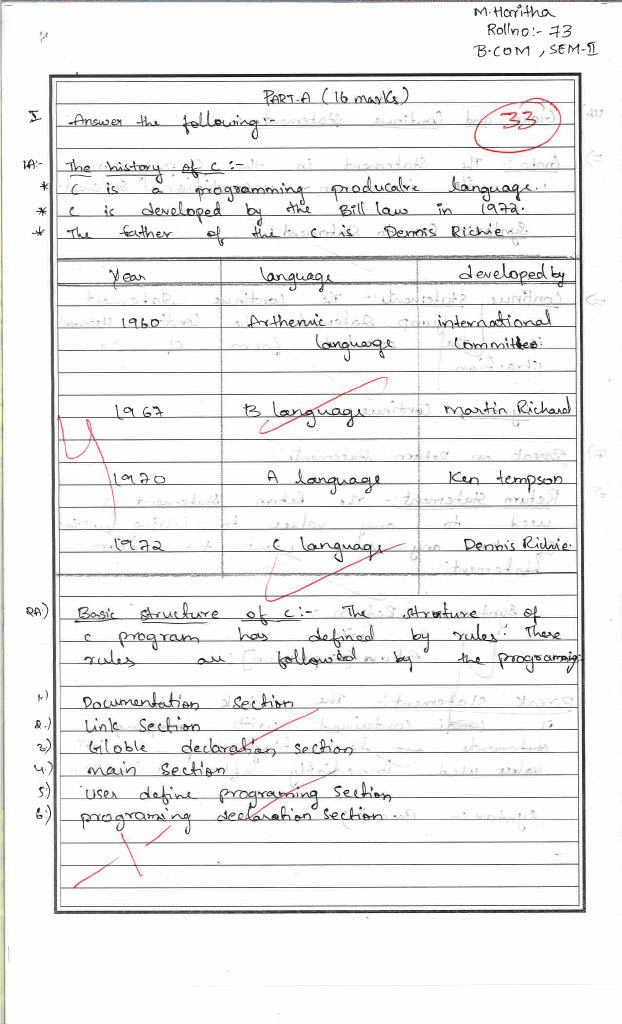 M. Haritha
Roll no:- 73
B.COM, SEM-II
PART-A (16 marks)
33
I Answer the following:-
1A:- The history of C :-
* C is a programming producalre language.
* C is developed by the Bill law in 1972.
* The father of the C is Dennis Richie
Year language developed by
1960 Arthemic international
language Committee
1967 B language Martin Richard
1970 A language Ken tempson
1972 C language Dennis Richie.
2A:) Basic structure of C :- The structure of
C program has defined by rules. These
rules are followed by the programing.
1.) Documentation Section
2.) Link Section
3) Globle declaration section
4.) main Section
5) User define programing Section
6.) programing declaration Section.